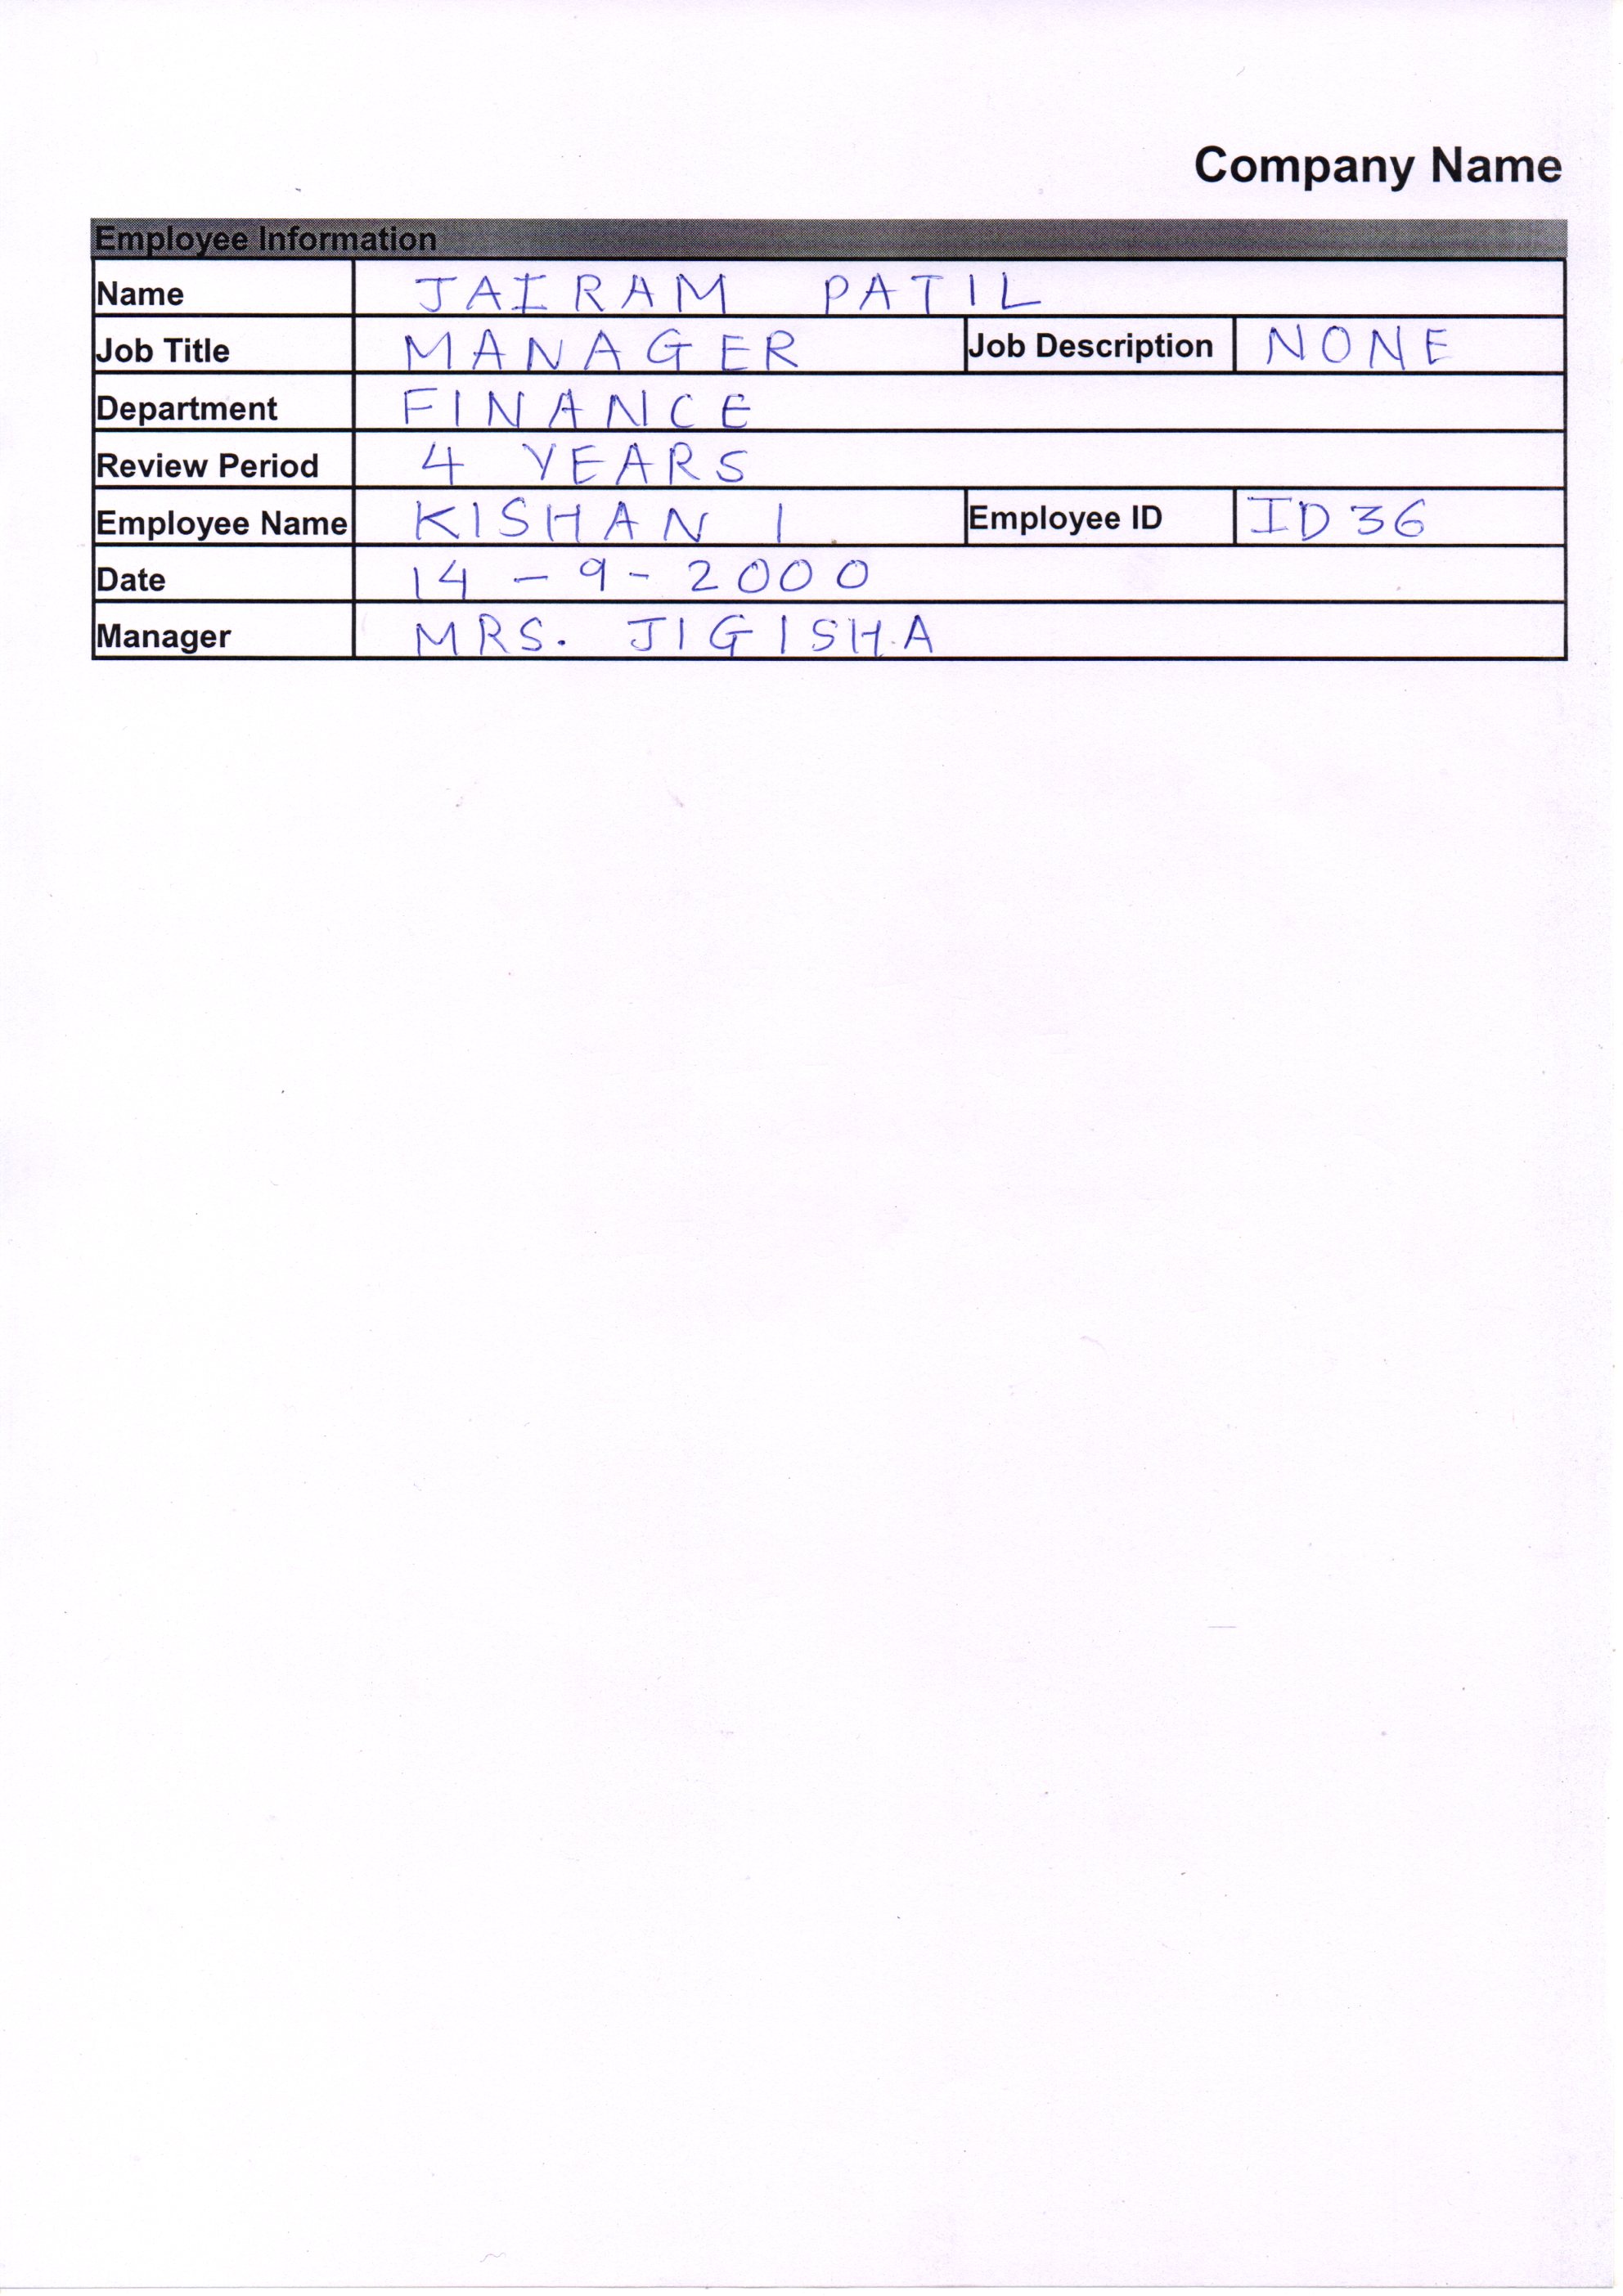 Company Name
Employee Information
Name JAIRAM PATIL
Job Title MANAGER Job Description NONE
Department FINANCE
Review Period 4 YEARS
Employee Name KISHAN I Employee ID ID36
Date 14 - 9 - 2000
Manager MRS. JIGISHA